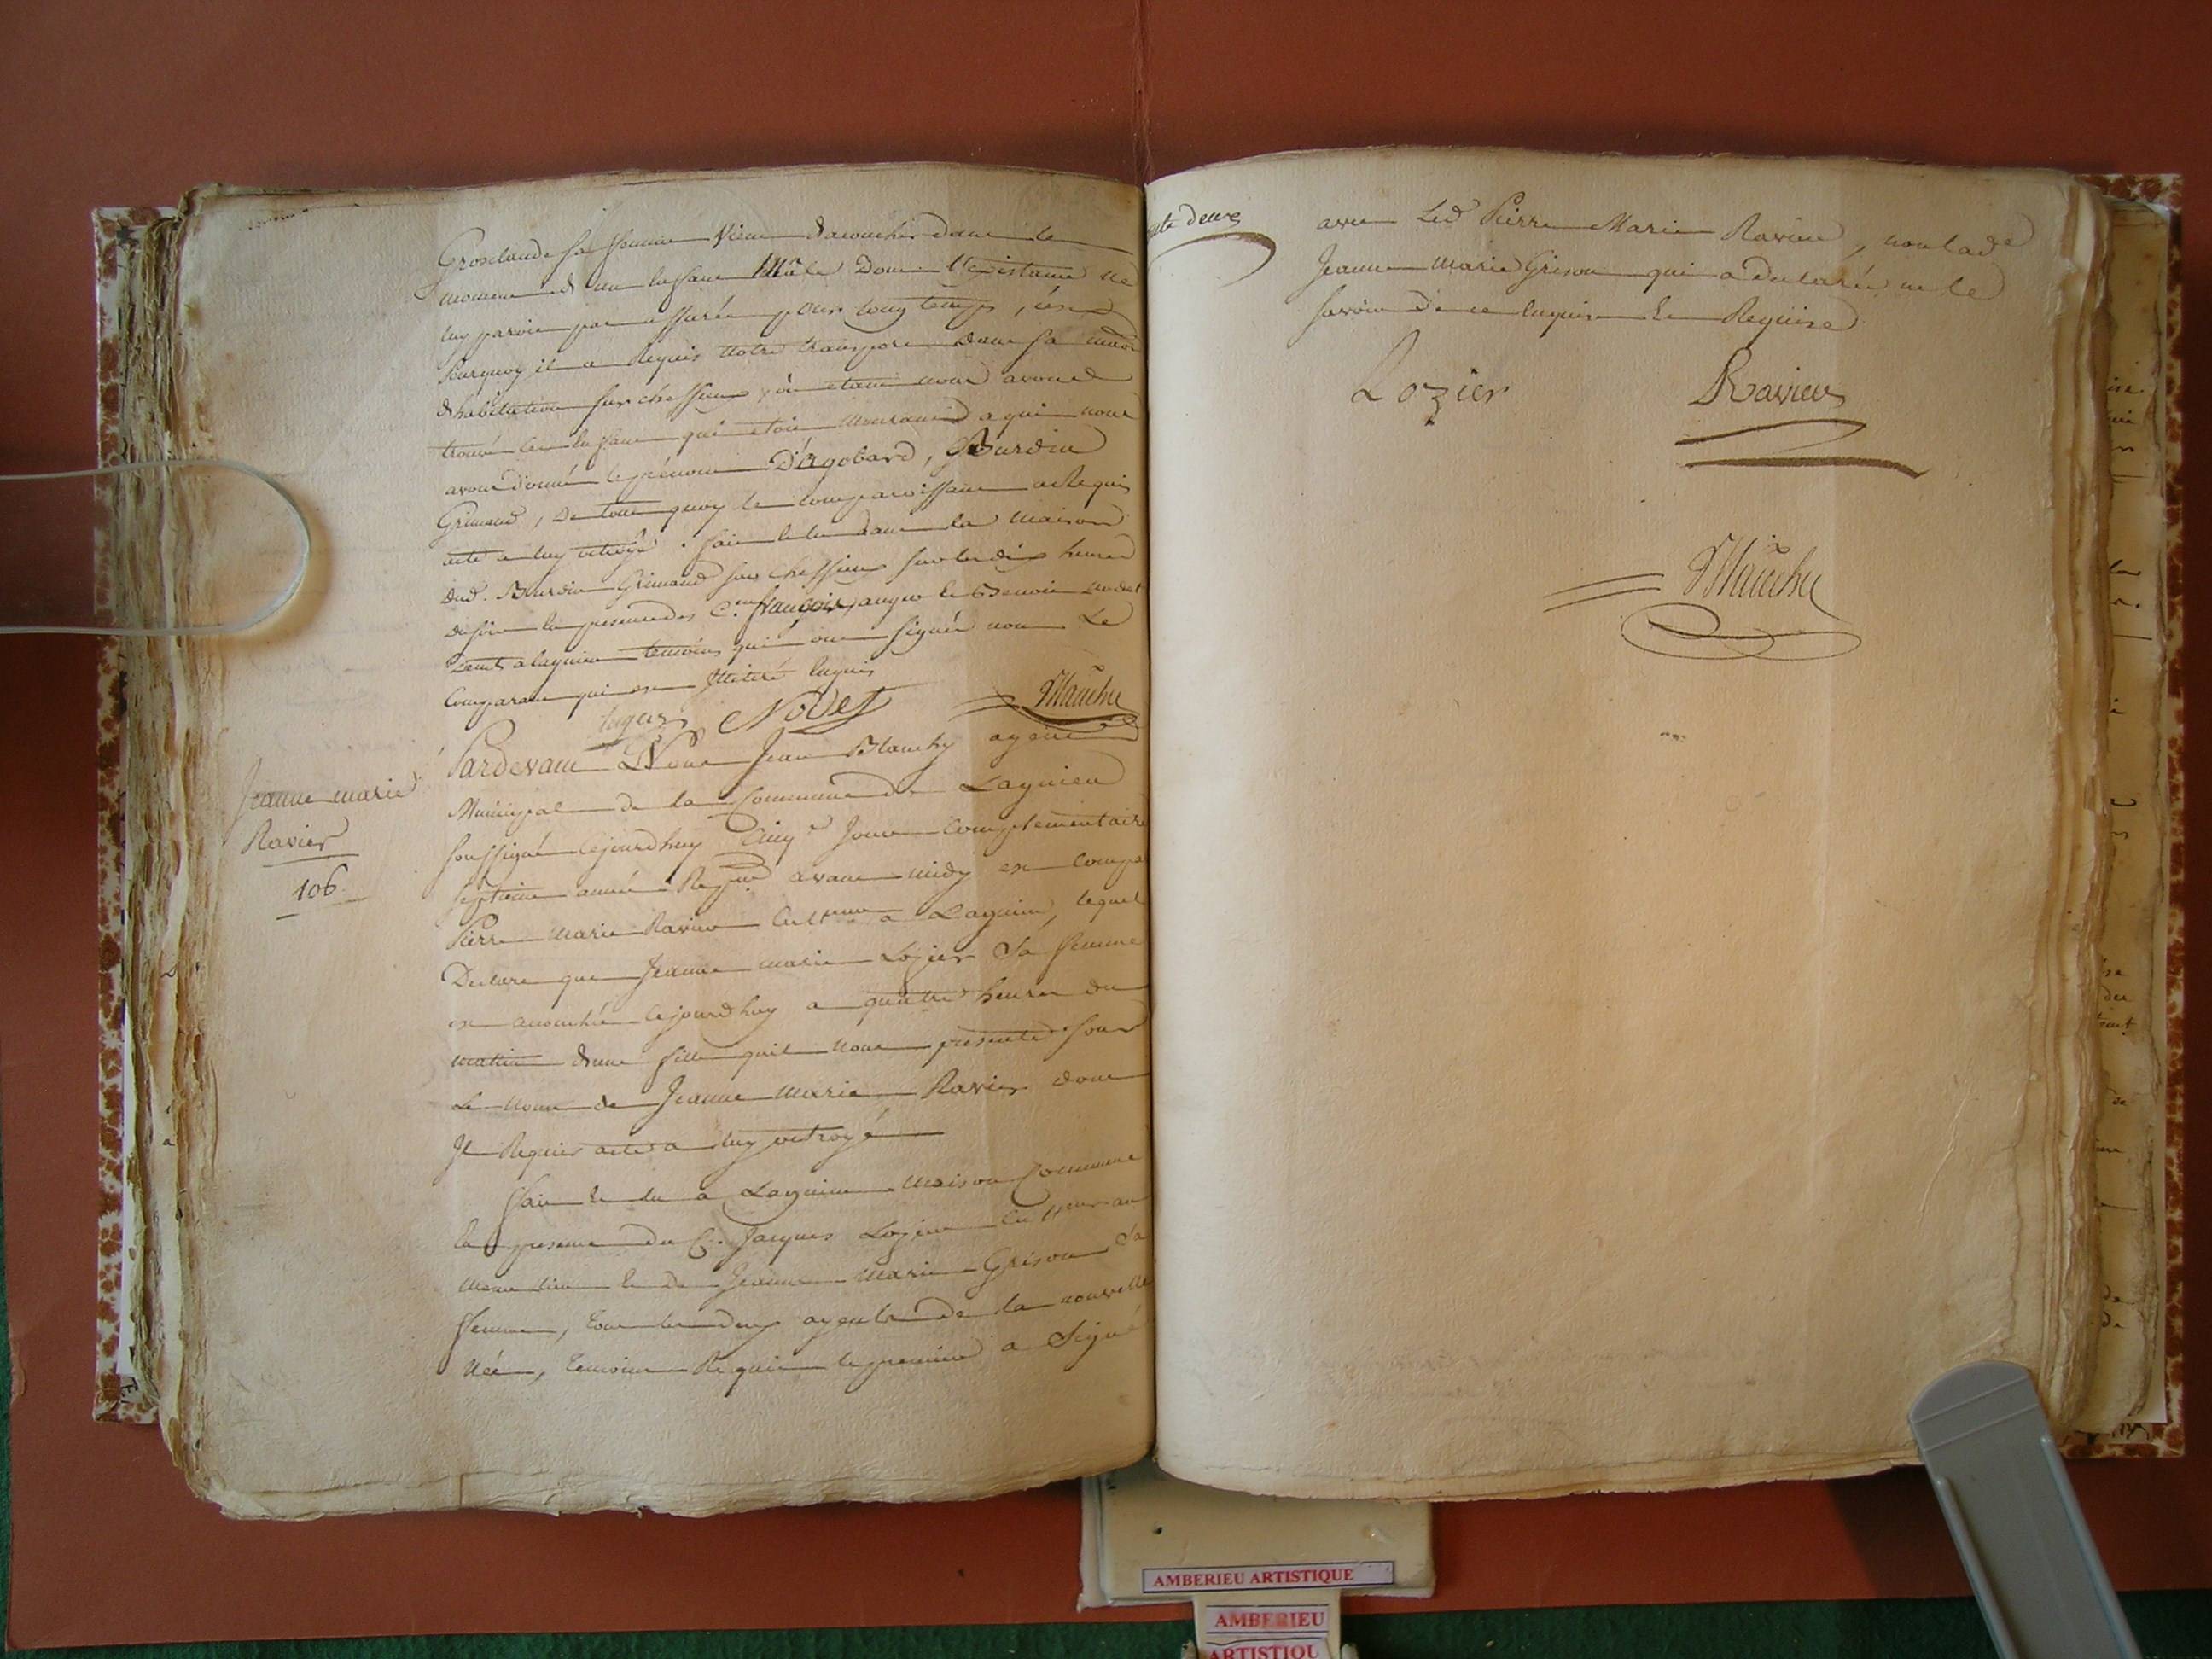 Groslande sa femme vient d'acoucher dans le
moment d'un enfant Mâle Dont l'existance ne
luy paroit pas assurée pour long temps, c'est
pourquoy il a Requis notre transport dans sa maon
d'habitation sur chessieux, où etant nous avons
trouvé led enfant qui etoit mourant a qui nous
avons donné le prénom D'Agobard, Burdin
Grimaud, De tout quoy le comparoissant a Requis
acte a luy octroyé. fait et lu dans la maison
dud. Burdin Grimaud sur Chessieux sur les dix heures
du soir en presence des C.ens françois et Benoit nodet
a lagnieu temoins qui ont signés non Le
Comparant qui est illitéré Enquis
Nodet Blanchy
Pardevant Nous Jean Blanchy agent
Municipal de la Commune de Lagnieu
soussigné cejourdhuy Cinq.e Jour complementaire
septieme année Rep.ne avant midy est compa
Pierre Marie Ravier cult.eur a Lagnieu, lequel
Declare que Jeanne marie Lozier Sa femme
est acouchée cejourdhuy a quatre heures du
matin d'une fille quil nous presente sous
Le nom de Jeanne Marie Ravier dont
Il Requier acte a luy octroyé
Fait et lu a Lagnieu Maison Commune
en presence du C.en Jacques Lozier cult.eur au
meme lieu et de Jeanne Marie Grison Sa
femme, tous les deux ayeuls de la nouvelle
née, temoins Requis le premier a Signé
Jeanne marie
Ravier
106
deux
avec Led Pierre Marie Ravier, non lade
Jeanne Marie Grison qui a declaré ne le
savoir de ce Enquise Et Requise
Lozier Ravier
Blanchy
AMBERIEU ARTISTIQUE
AMBERIEU
ARTISTIQU